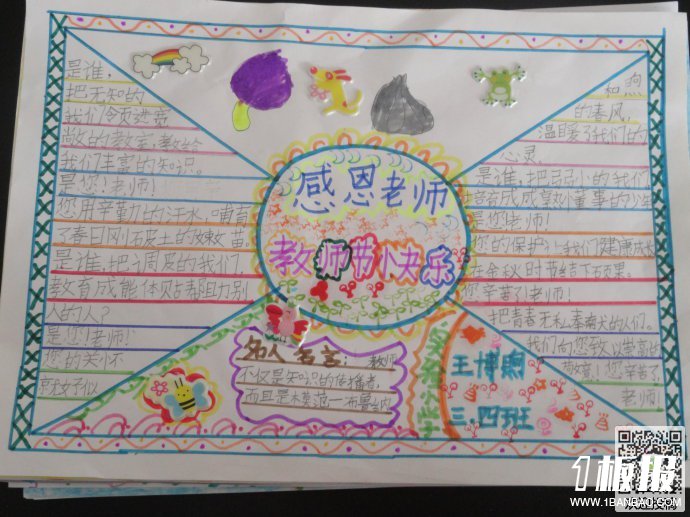 感恩老师
教师节快乐
是谁,
把无知的
我们领页进宽
敞的教室,教给
我们丰富的知识。
是您!老师!
您用辛勤的汗水,哺育
了春日刚刚破土的嫩苗
是谁,把调皮的我们
教育成能体贴帮助别
人的人?
是您!老师!
您的关怀
就好似
和煦
的春风,
温暖了我们的
心灵。
是谁,把弱小的我们
培育成成熟懂事的少年
是您老师!
您的保护让我们健康成长
在金秋时节结下硕果。
您辛苦了老师!
把青春无私奉献的人们。
我们向您致以崇高的
敬意!您辛苦了
老师!
名人名言: 教师
不仅是知识的传播者,
而且是模范—布鲁纳
小学
王博
三.四班
1板报
WWW.1BANBAO.COM